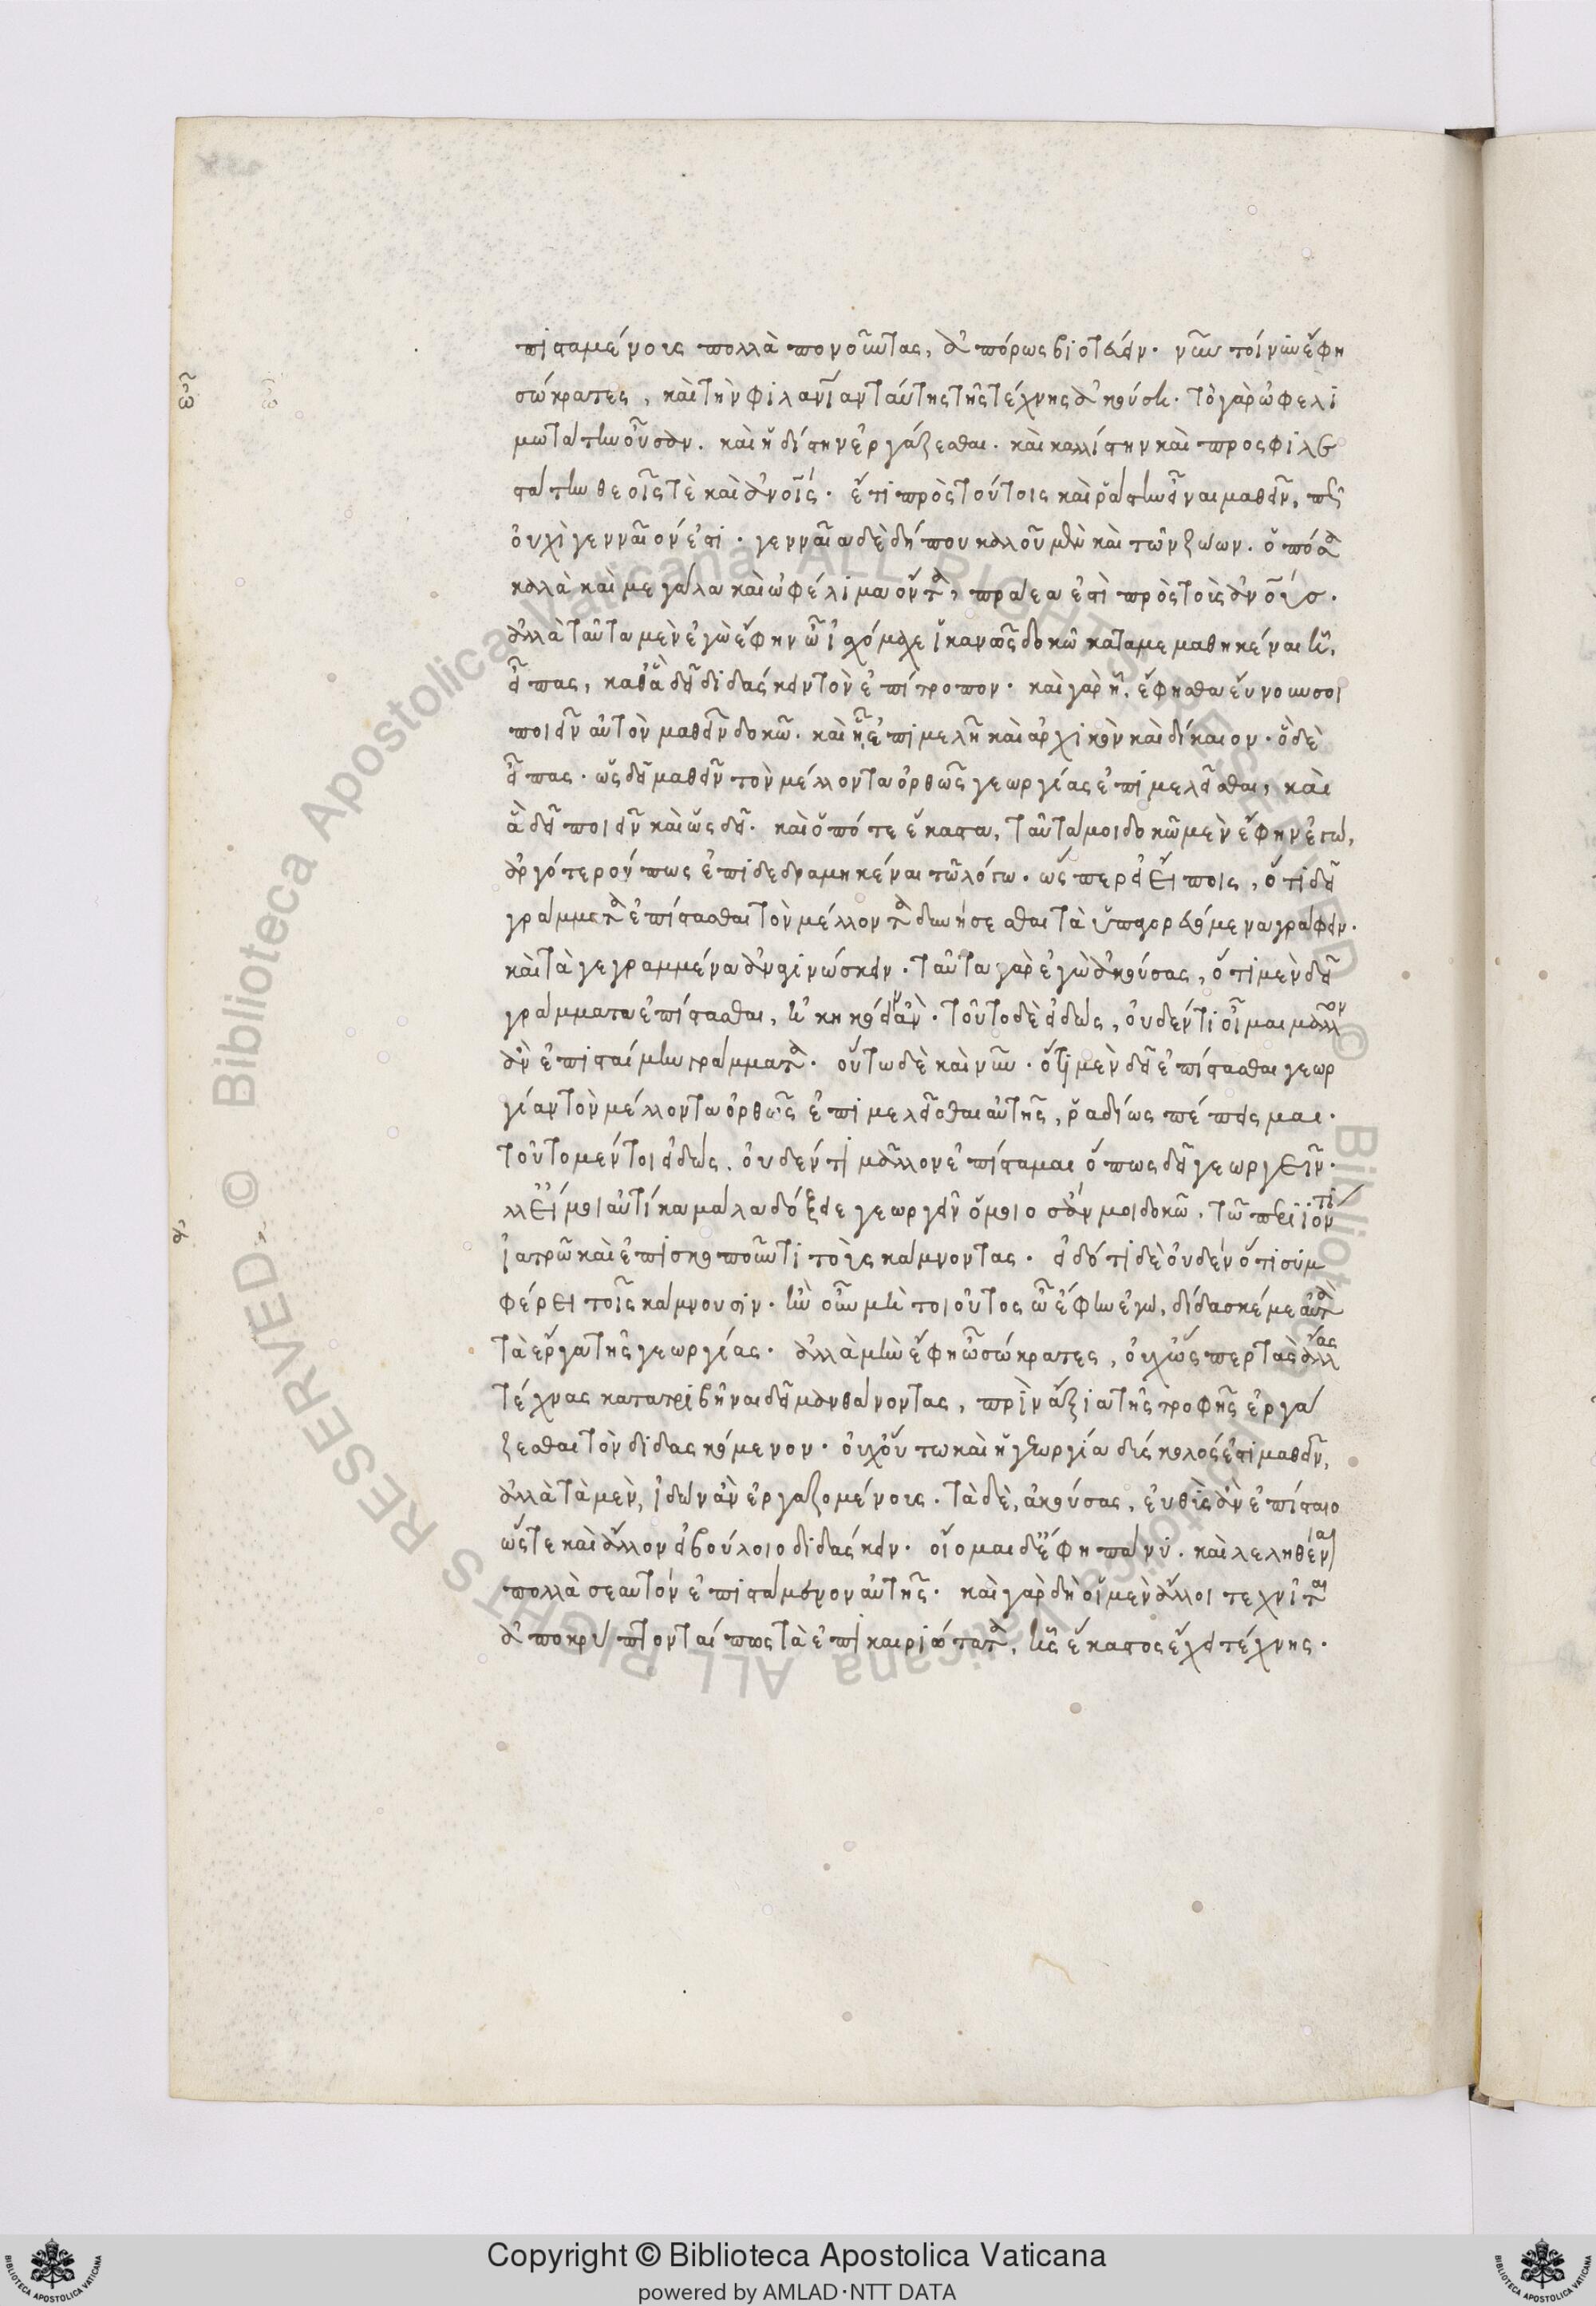 πισταμένους πολλὰ πονοῦντας, ἀπόρως βιοτεύειν. νῦν τοίνυν ἔφη
σώκρατες, καὶ τὴν φιλανθρωπίαν ταύτης τῆς τέχνης ἀκούσῃ. τὸ γὰρ ὠφελι
μωτάτην οὖσαν. καὶ ἡδίστην ἐργάζεσθαι. καὶ καλλίστην καὶ προσφιλεσ
τάτην θεοῖς τὲ καὶ ἀνοις. ἔτι πρὸς τούτοις καὶ ῥάστην εἶναι μαθεῖν, πῶς
οὐχὶ γενναῖον ἐστι. γενναῖα δὲ δήπου καλοῦμεν καὶ τῶν ζώων. ὁπόσα
καλὰ καὶ μεγάλα καὶ ὠφέλιμα ὄντα, πραέα ἐστὶ πρὸς τοὺς ἀνους.
ἀλλὰ ταῦτα μὲν ἐγὼ ἔφην ὦ ἰσχόμαχε ἱκανῶς δοκῶ καταμεμαθηκέναι ᾗ
εἶπας, καθὰ δεῖ διδάσκειν τὸν ἐπίτροπον. καὶ γὰρ ᾗ ἔφησθα εὔνουν σοι
ποιεῖν αὐτὸν μαθεῖν δοκῶ. καὶ ᾗ ἐπιμελῆ καὶ ἀρχικὸν καὶ δίκαιον. ὃ δὲ
εἶπας. ὡς δεῖ μαθεῖν τὸν μέλλοντα ὀρθῶς γεωργίας ἐπιμελεῖσθαι, καὶ
ἃ δεῖ ποιεῖν καὶ ὡς δεῖ. καὶ ὁπότε ἕκαστα, ταῦτα μοι δοκῶ μὲν ἔφην ἐγὼ,
ἀργότερόν πως ἐπιδεδραμηκέναι τῶ λόγω. ὥσπερ εἰ εἴποις, ὅτι δεῖ
γράμματα ἐπίστασθαι τὸν μέλλοντα δυνήσεσθαι τὰ ὑπαγορευόμενα γράφειν.
καὶ τὰ γεγραμμένα ἀναγινώσκειν. ταῦτα γὰρ ἐγὼ ἀκούσας, ὅτι μὲν δεῖ
γράμματα ἐπίστασθαι, ἠκηκόειν ἄν. τοῦτο δὲ εἰδὼς, οὐδέν τι οἶμαι μᾶλλον
ἂν ἐπισταίμην γράμματα. οὕτω δὲ καὶ νῦν. ὅτι μὲν δεῖ ἐπίστασθαι γεωρ
γίαν τὸν μέλλοντα ὀρθῶς ἐπιμελεῖσθαι αὐτῆς, ῥαδίως πέπεισμαι.
τοῦτο μέντοι εἰδὼς, οὐδέν τι μᾶλλον ἐπίσταμαι ὅπως δεῖ γεωργεῖν.
λλ εἴ μοι αὐτίκα μάλα δόξειε γεωργεῖν ὅμοιος ἄν μοι δοκῶ. τῶ περιιόντι
ἰατρῶ καὶ ἐπισκοποῦντι τοὺς κάμνοντας. εἰδότι δὲ οὐδὲν ὅτι συμ
φέρει τοῖς κάμνουσιν. ἵν οὖν μὴ τοιοῦτος ὦ ἔφην ἐγὼ, δίδασκέ με αὐτὰ
τὰ ἔργα τῆς γεωργίας. ἀλλὰ μὴν ἔφη ὦ σώκρατες, οὐχ ὥσπερ τὰς ἄλλας
τέχνας κατατριβῆναι δεῖ μανθάνοντας, πρὶν ἄξια τῆς τροφῆς ἐργά
ζεσθαι τὸν διδασκόμενον. οὐχ οὕτω καὶ ἡ γεωργία δύσκολός ἐστι μαθεῖν,
ἀλλὰ τὰ μὲν, ἰδὼν ἂν ἐργαζομένους. τὰ δὲ, ἀκούσας, εὐθὺς ἂν ἐπίσταιο
ὥστε καὶ ἄλλον εἰ βούλοιο διδάσκειν. οἴομαι δ ἔφη πάνυ. καὶ λεληθέναι
πολλὰ σεαυτὸν ἐπιστάμενον αὐτῆς. καὶ γὰρ δὴ οἱ μὲν ἄλλοι τεχνῖται
ἀποκρύπτονταί πως τὰ ἐπικαιριώτατα, ἧς ἕκαστος ἔχει τέχνης.